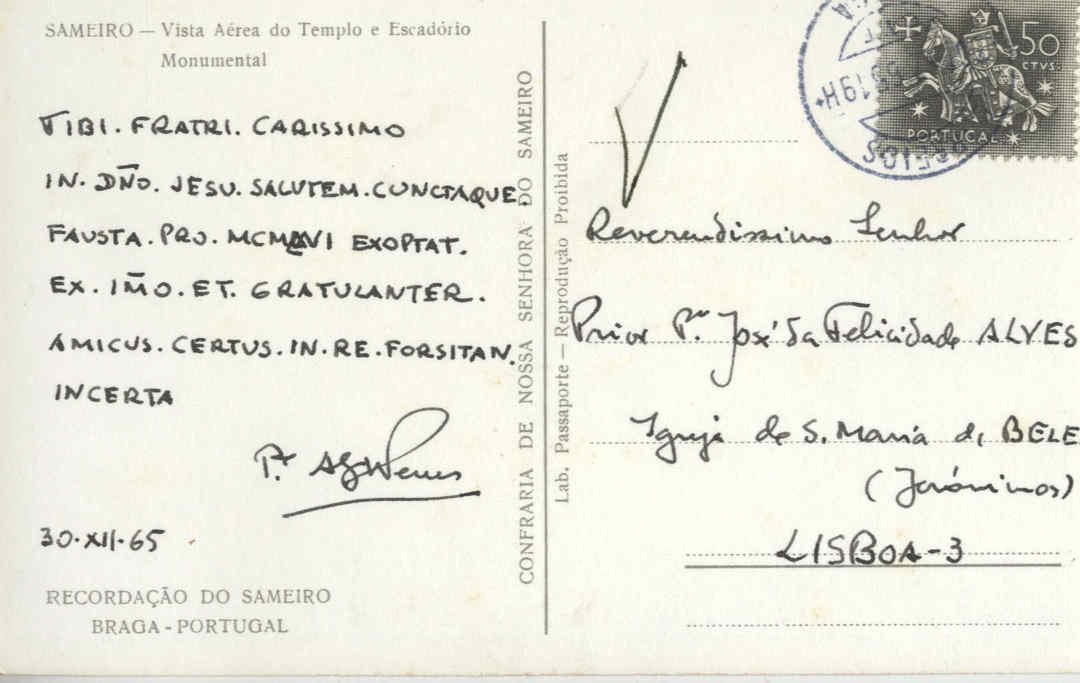 SAMEIRO — Vista Aérea do Templo e Escadório
Monumental
TIBI. FRATRI. CARISSIMO
IN. DN̄O. JESU. SALUTEM. CUNCTAQUE
FAUSTA. PRO. MCMLXVI EXOPTAT.
EX. IM̄O. ET. GRATULANTER.
AMICUS. CERTUS. IN. RE. FORSITAN.
INCERTA
30.XII.65
RECORDAÇÃO DO SAMEIRO
BRAGA - PORTUGAL
CONFRARIA DE NOSSA SENHORA DO SAMEIRO
Lab. Passaporte — Reprodução Proibida
50
CTVS.
PORTUGAL
19H
Reverendissimo Senhor
Prior Pe. José da Felicidade ALVES
Igreja de S. Maria de BELE
(Jerónimos)
LISBOA-3